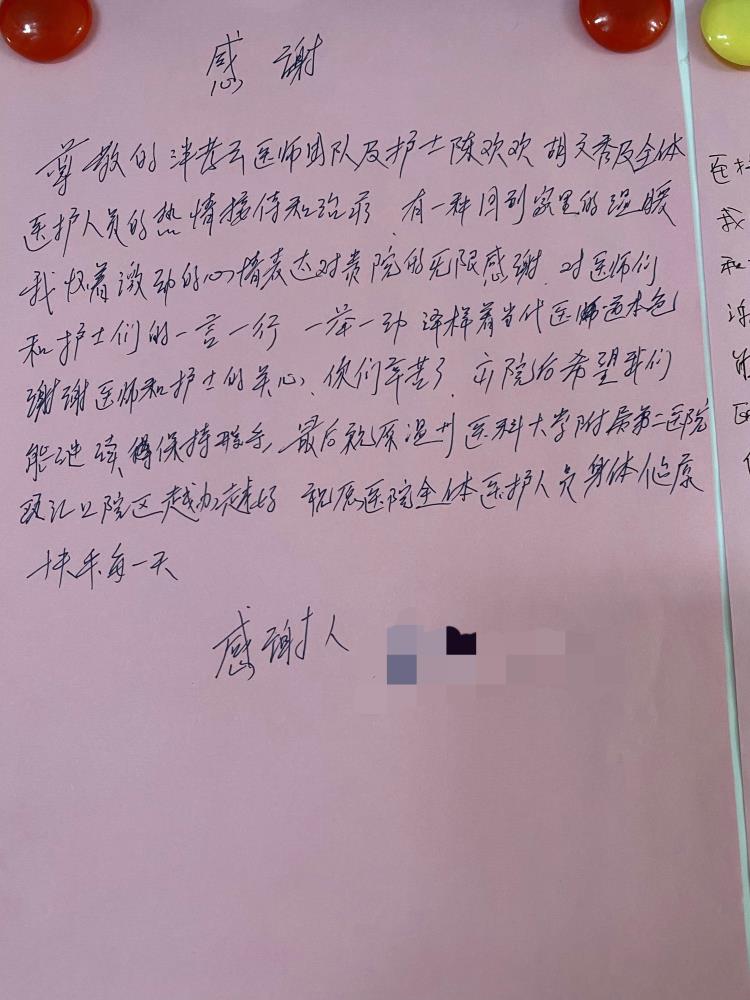 感谢
尊敬的 医师团队及护士陈欢欢 胡文秀及全体
医护人员的热情接待和治疗 有一种回到家里的温暖
我怀着激动的心情表达对贵院的无限感谢 对医师们
和护士们的一言一行 一举一动 着当代医师 本色
谢谢医师和护士的关心、你们辛苦了、出院后希望我们
能继续 保持联系、最后祝愿温州医科大学附属第二医院
瑶江口院区越办越好 祝愿医院全体医护人员身体健康
快乐每一天
感谢人
医
我
和